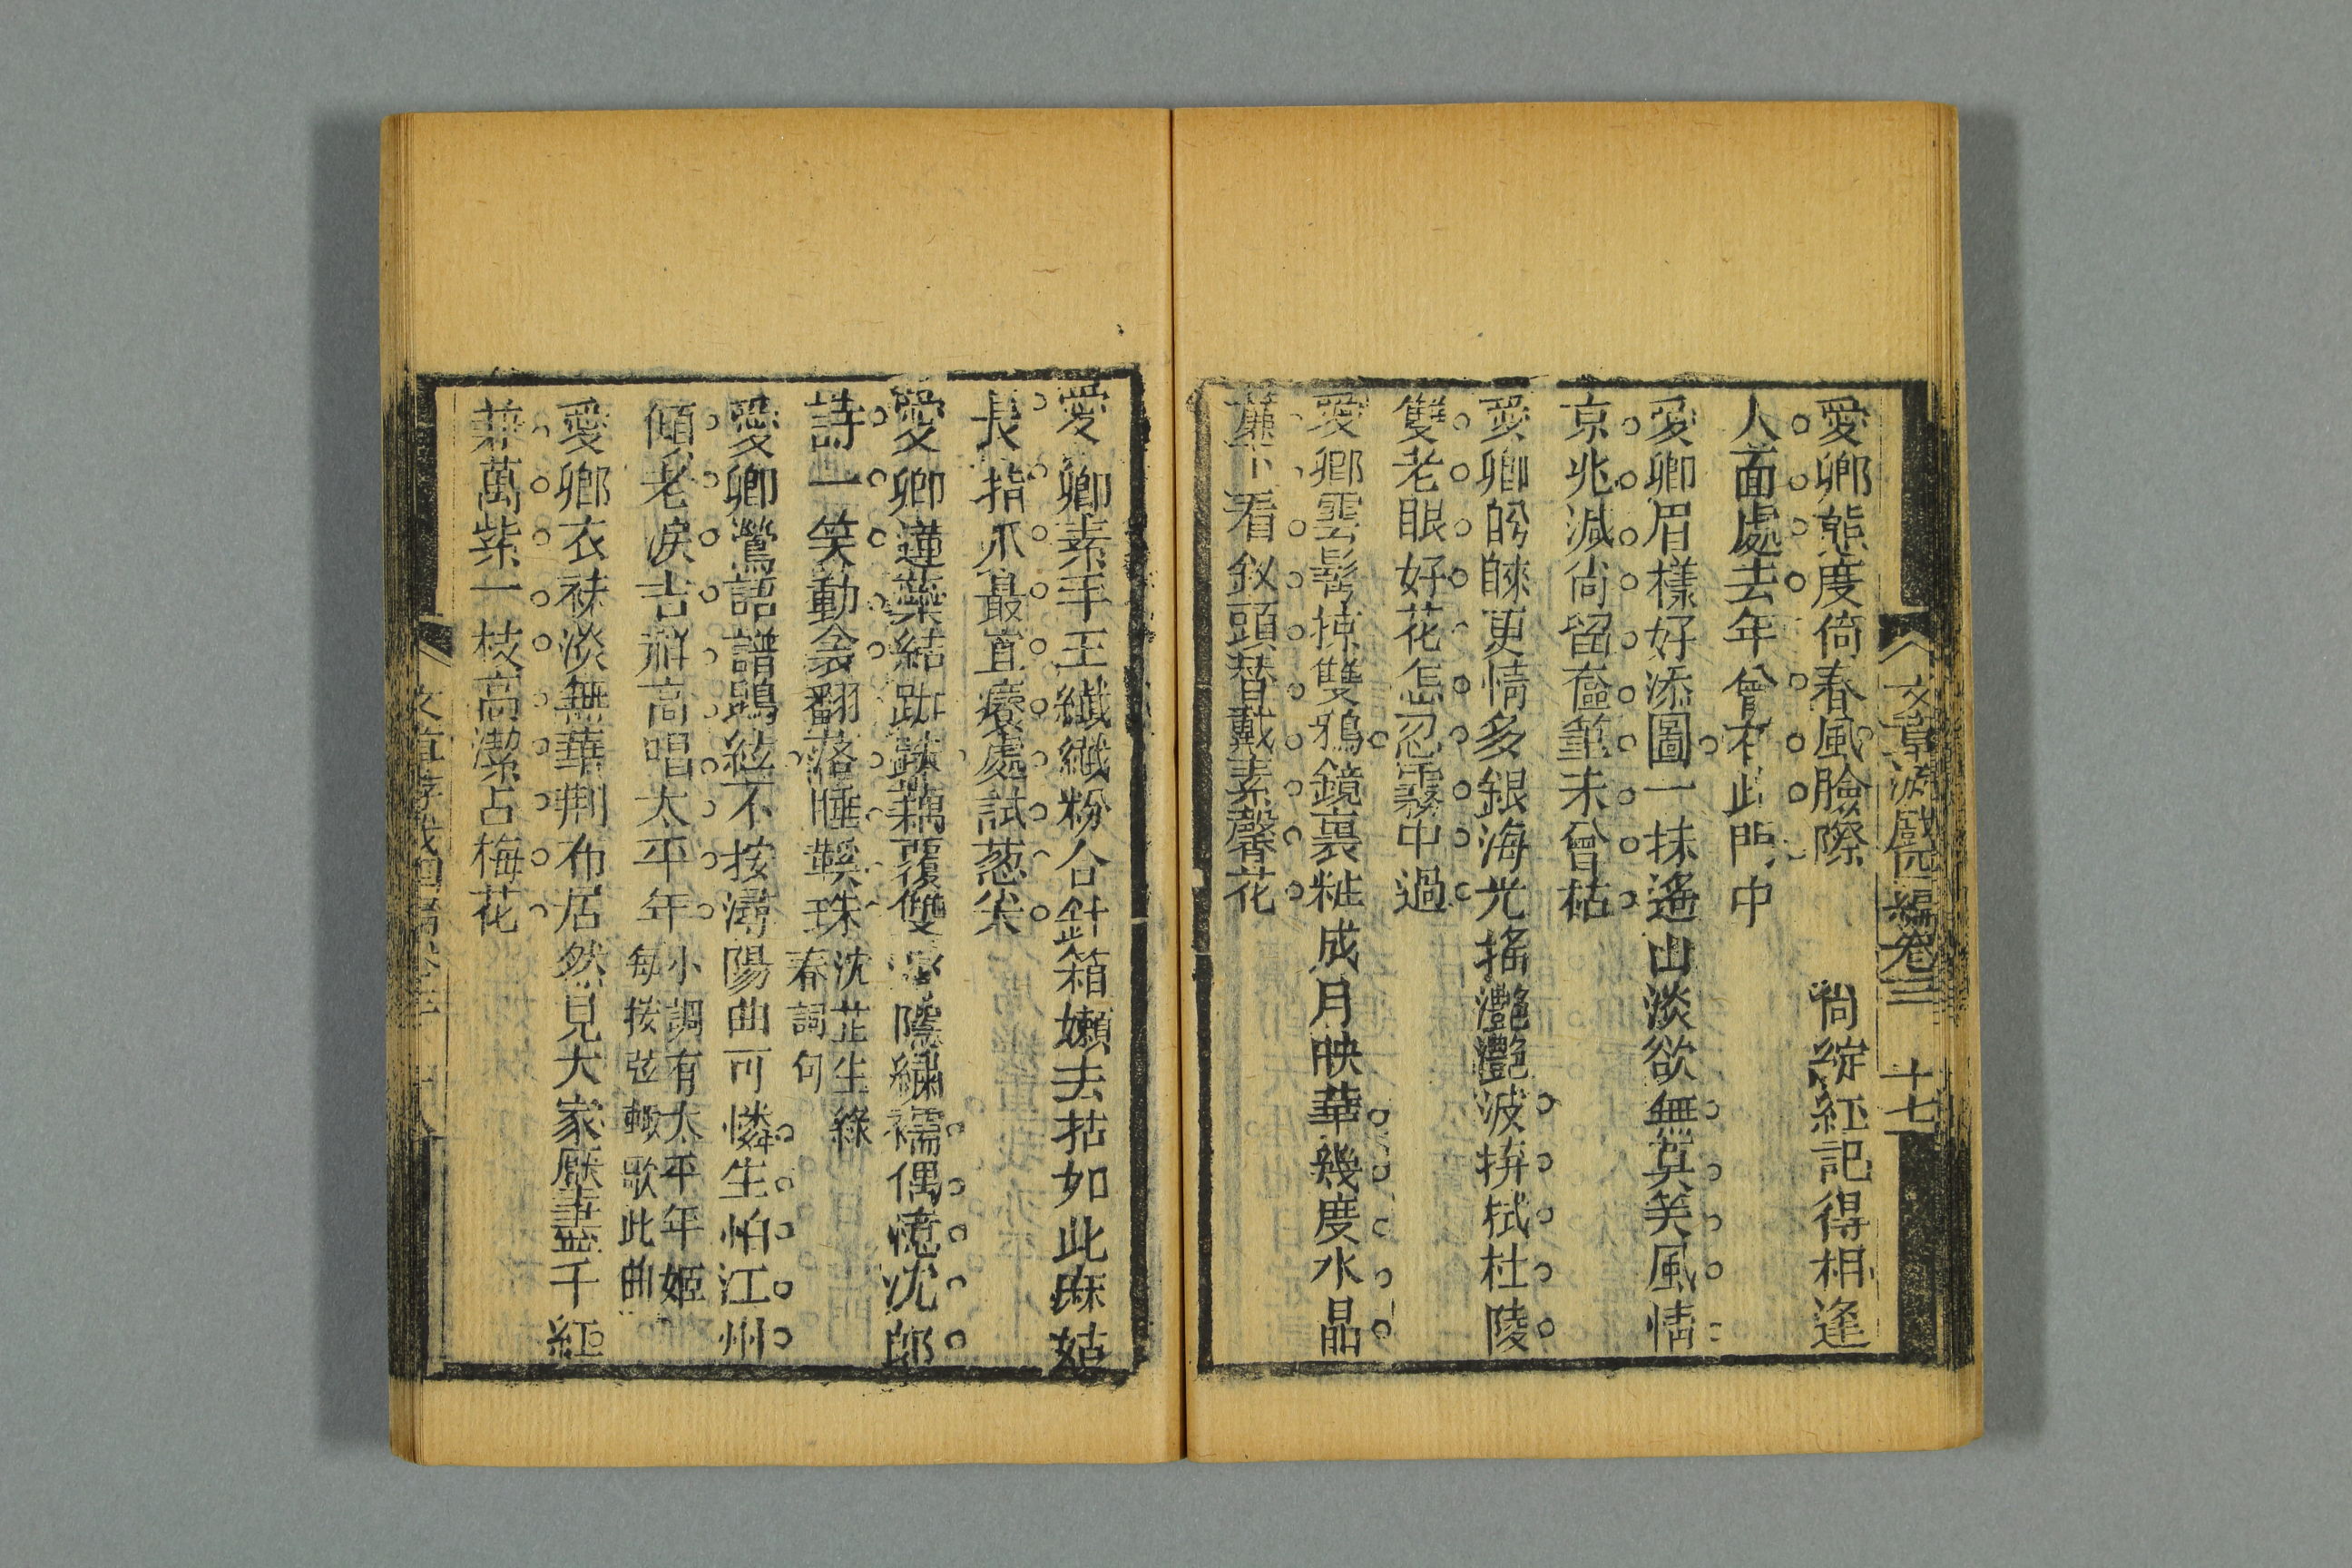 文章游戲四編卷三 十七
愛卿態度倚春風臉際 尙綻紅記得相逢
人面處去年曾在此門中
愛卿眉樣好添圖一抹遙山淡欲無莫笑風情
京兆減尚留奩筆未曾枯
愛卿的睞更情多銀海光搖灩灩波拚拭杜陵
雙老眼好花怎忍霧中過
愛卿雲髻掠雙鴉鏡裏粧成月映華幾度水晶
簾下看釵頭替戴素馨花
愛卿素手玉纖纖粉合針箱嬾去拈如此麻姑
長指爪最宜癢處試葱尖
愛卿蓮葉結跏趺藕覆雙 隱繡襦偶憶沈郎
詩一笑動衾翻落睡鞵珠 沈芷生綠
春詞句
愛卿鶯語譜鵾絃不按潯陽曲可憐生怕江州
傾老淚吉祥高唱太平年 小調有太平年姬
每按弦輙歌此曲
愛卿衣袜淡無華荆布居然見大家厭盡千紅
兼萬紫一枝高潔占梅花
文章游戲四編卷三 十八